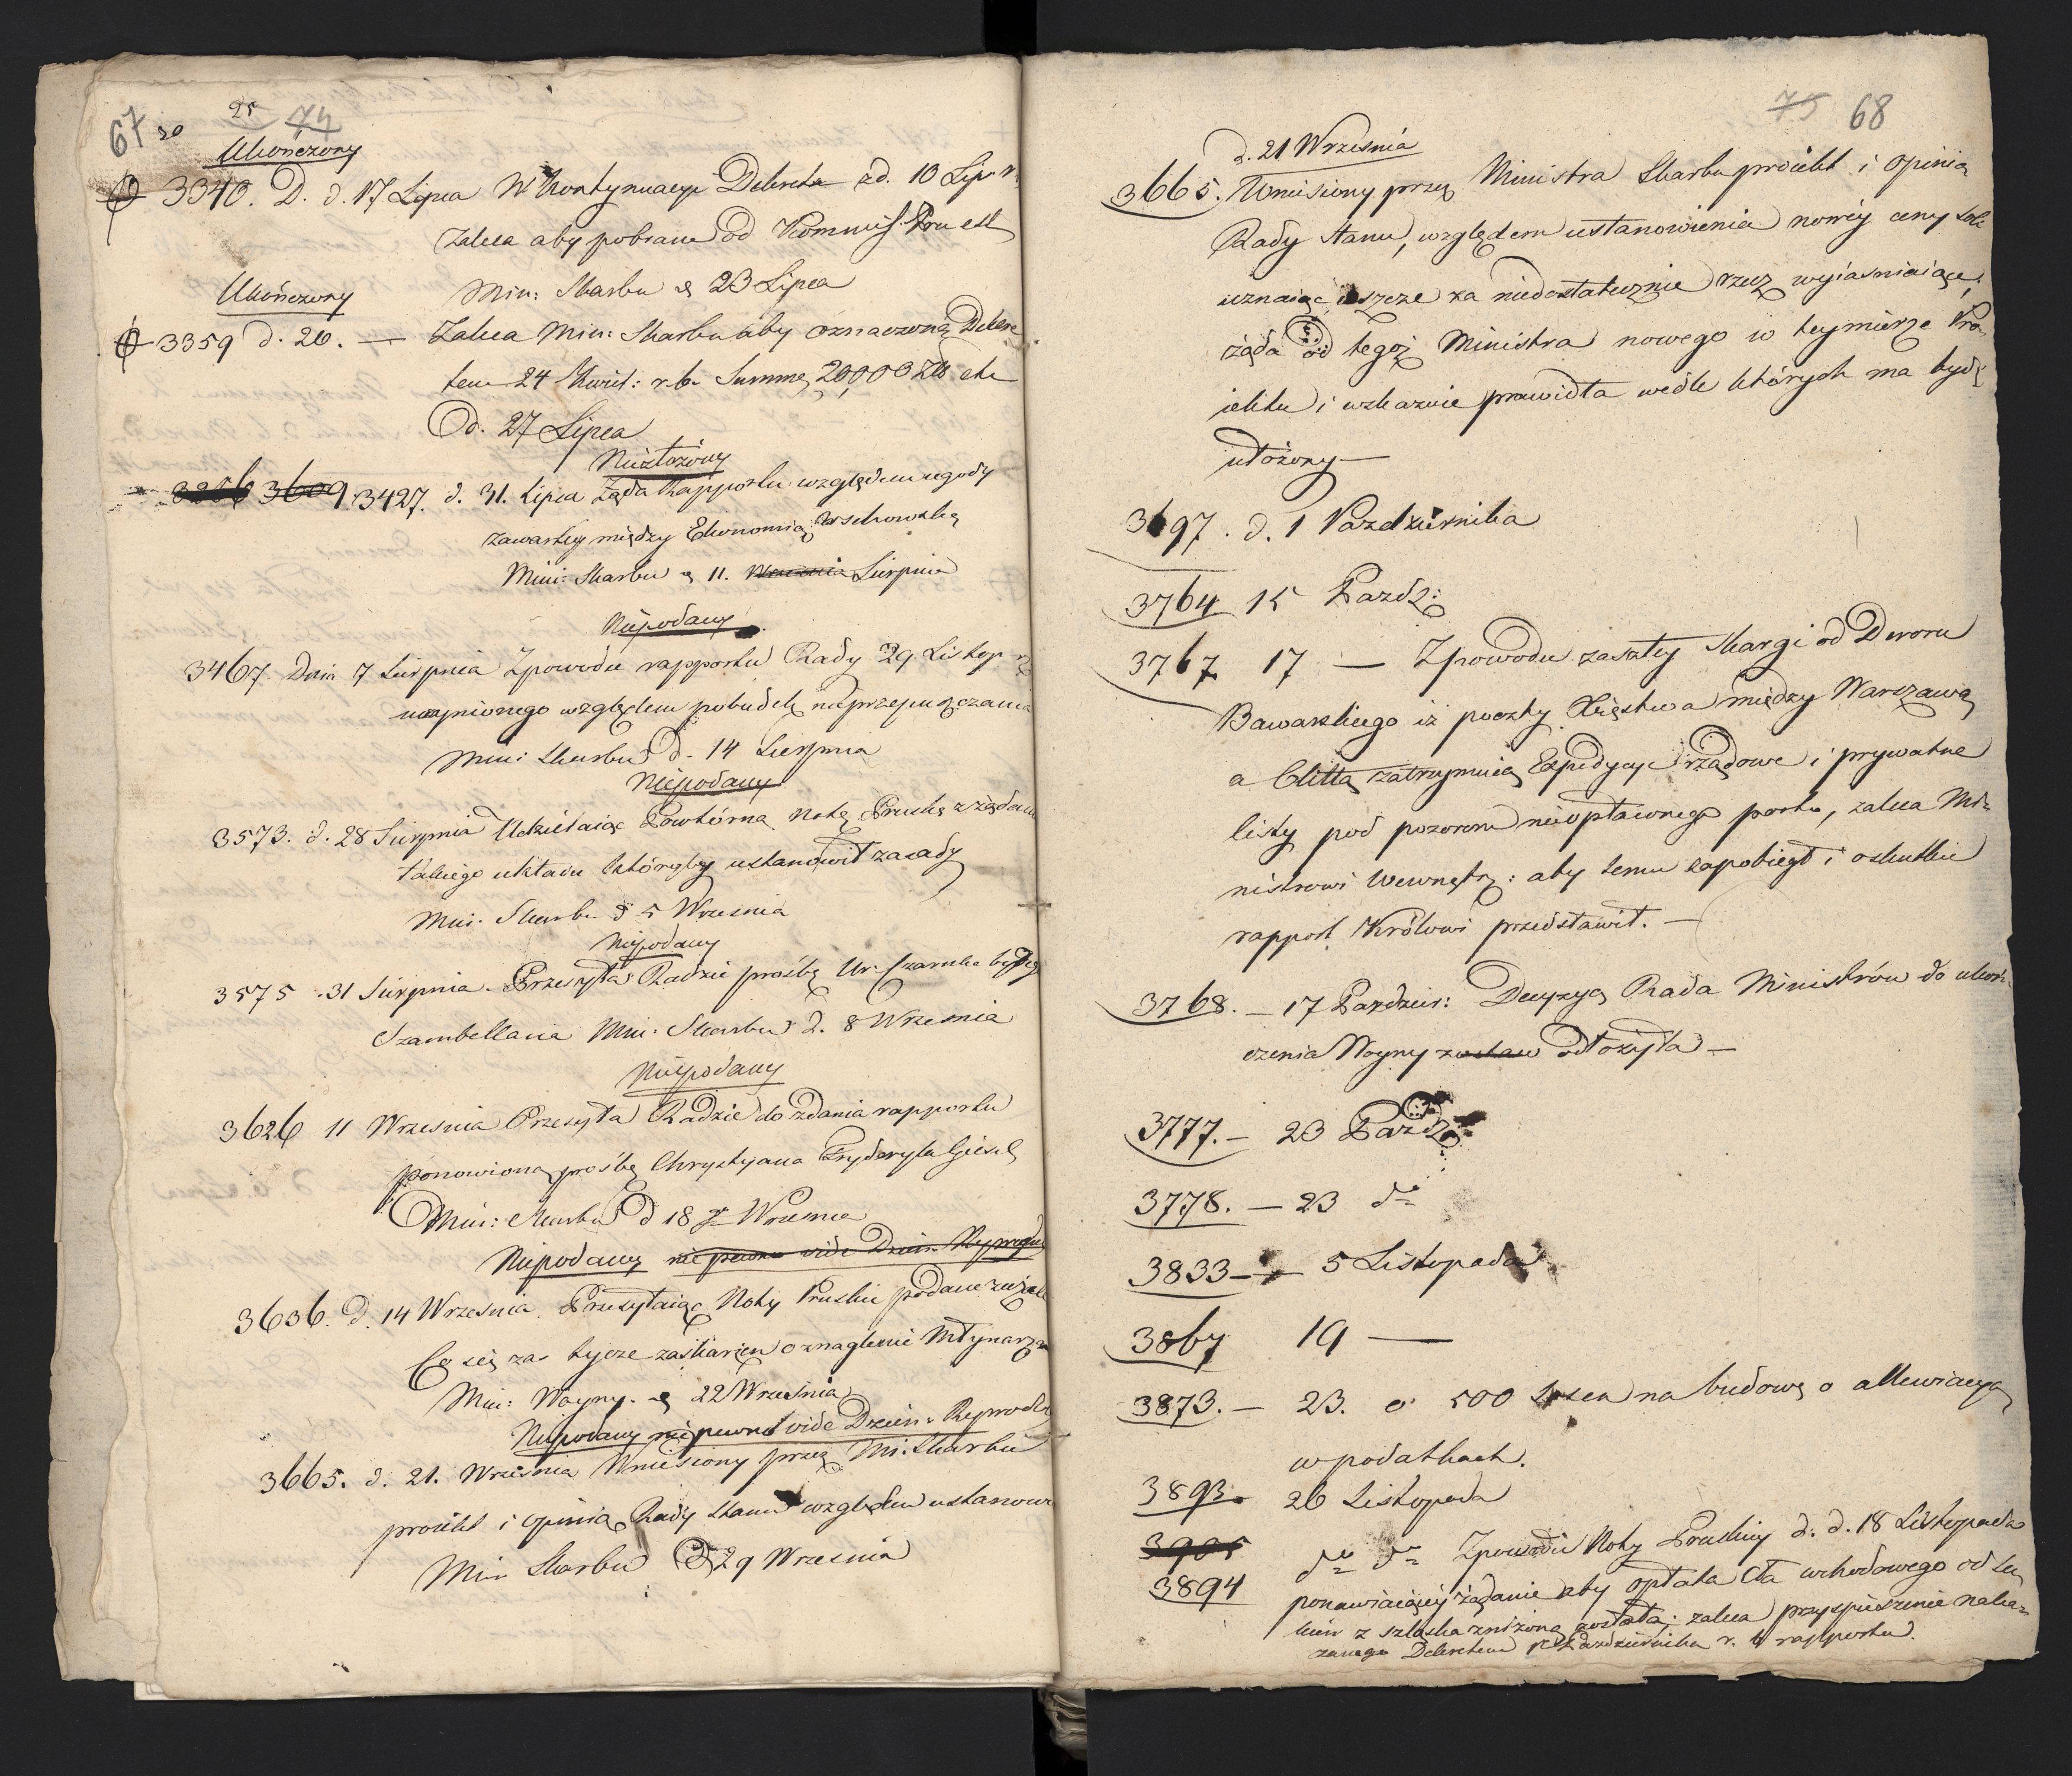 67 30 25 74
Ukończony
3340. D. d. 17 Lipca W Kontynuacyi Dekretu z d. 10 Lip. r.
zaleca aby pobrane od Kommiss.
Min: Skarbu d 23 Lipca
Ukończony
3359 d. 26. — Zaleca Min: Skarbu aby oznaczoną Dekre
tem 24 Kwiet: r. b. Summę 20,000 Zł etc
d. 27 Lipca
Nieztożony
3256 3609 3427. d. 31. Lipca Żąda Rapportu względem ugody
zawartey między Ekonomią Wschowską
Mini: Skarbu d 11. Września Sierpnia
Niepodany
3467. Dnia 7 Sierpnia Zpowodu rapportu Rady 29 Listop
uczynionego względem pobudek
Mini Skarbu d. 14 Sierpnia
Niepodany
3573. d. 28 Sierpnia Udzielaiąc Powtórną Notę Pruską z żądan
takiego układu któryby ustanowił zasady
Min. Skarbu d 5 Wrzesnia
Niepodany
3575 . 31 Sierpnia. Przesyła Radzie prośbę Ur. Czarnka
Szambellana Min: Skarbu d. 8 Wrzesnia
Niepodany
3626 11 Wrzesnia Przesyła Radzie do zdania rapportu
ponowioną prośbę Chrystyana Fryderyka
Min: Skarbu d 18 Wrzesnia
Niepodany nie pewne vide Dzien.
3636. d. 14 Wrzesnia. Przesyłaiąc Noty Pruskie podane
Co się zas tycze zaskarżen o znaglenie Młynarzy
Min: Woyny. d 22 Wrzesnia
Niepodany nie pewne vide Dzien.
3665. d. 21. Wrzesnia Wniesiony przez Mi. Skarbu
proiekt i opinią Rady Stanu względem ustanow
Min Skarbu d 29 Wrzesnia
75 68
d. 21 Wrzesnia
3665. Wniesiony przez Ministra Skarbu proiekt i opinią
Rady Stanu, względem ustanowienia nowéy ceny soli
uznaiąc ieszcze za niedostatecznie rzecz wyiasniaiące,
żąda od tegoż Ministra nowego w teymierze Pro-
iektu i wskazuie prawidła wedle których ma bydź
ułożony —
3697. d. 1 Pazdziernika
3764 15 Pazdz:
3767 17 — Zpowodu zaszłey skargi od Dworu
Bawarskiego iż poczty Xięstwa między Warszawą
a zatrzymuią Expedycye rządowe i prywatne
listy pod pozorem nieopłaconego porto, zaleca Mi-
nistrowi Wewnętrz: aby temu zapobiegł i o skutku
rapport Królowi przedstawił. —
3768. — 17 Pazdzier: Decyzyą Rada Ministrów do ukoń-
czenia Woyny odłożyła —
3777. — 23 Pazdz
3778. — 23 do
3833 — — 5 Listopada
3867 19 —
3873. — 23. o 500 na budowę o allewiacyą
w podatkach.
3893. 26 Listopada
3905
3894 do do Zpowodu Noty Pruskiey d. d. 18 Listopada
ponawiaiącey żądanie aby opłata Cła wchodowego od su
kien z szląska zniżoną została: zaleca przyspieszenie naka-
zanego Dekretem Pazdziernika r. b rapportu.